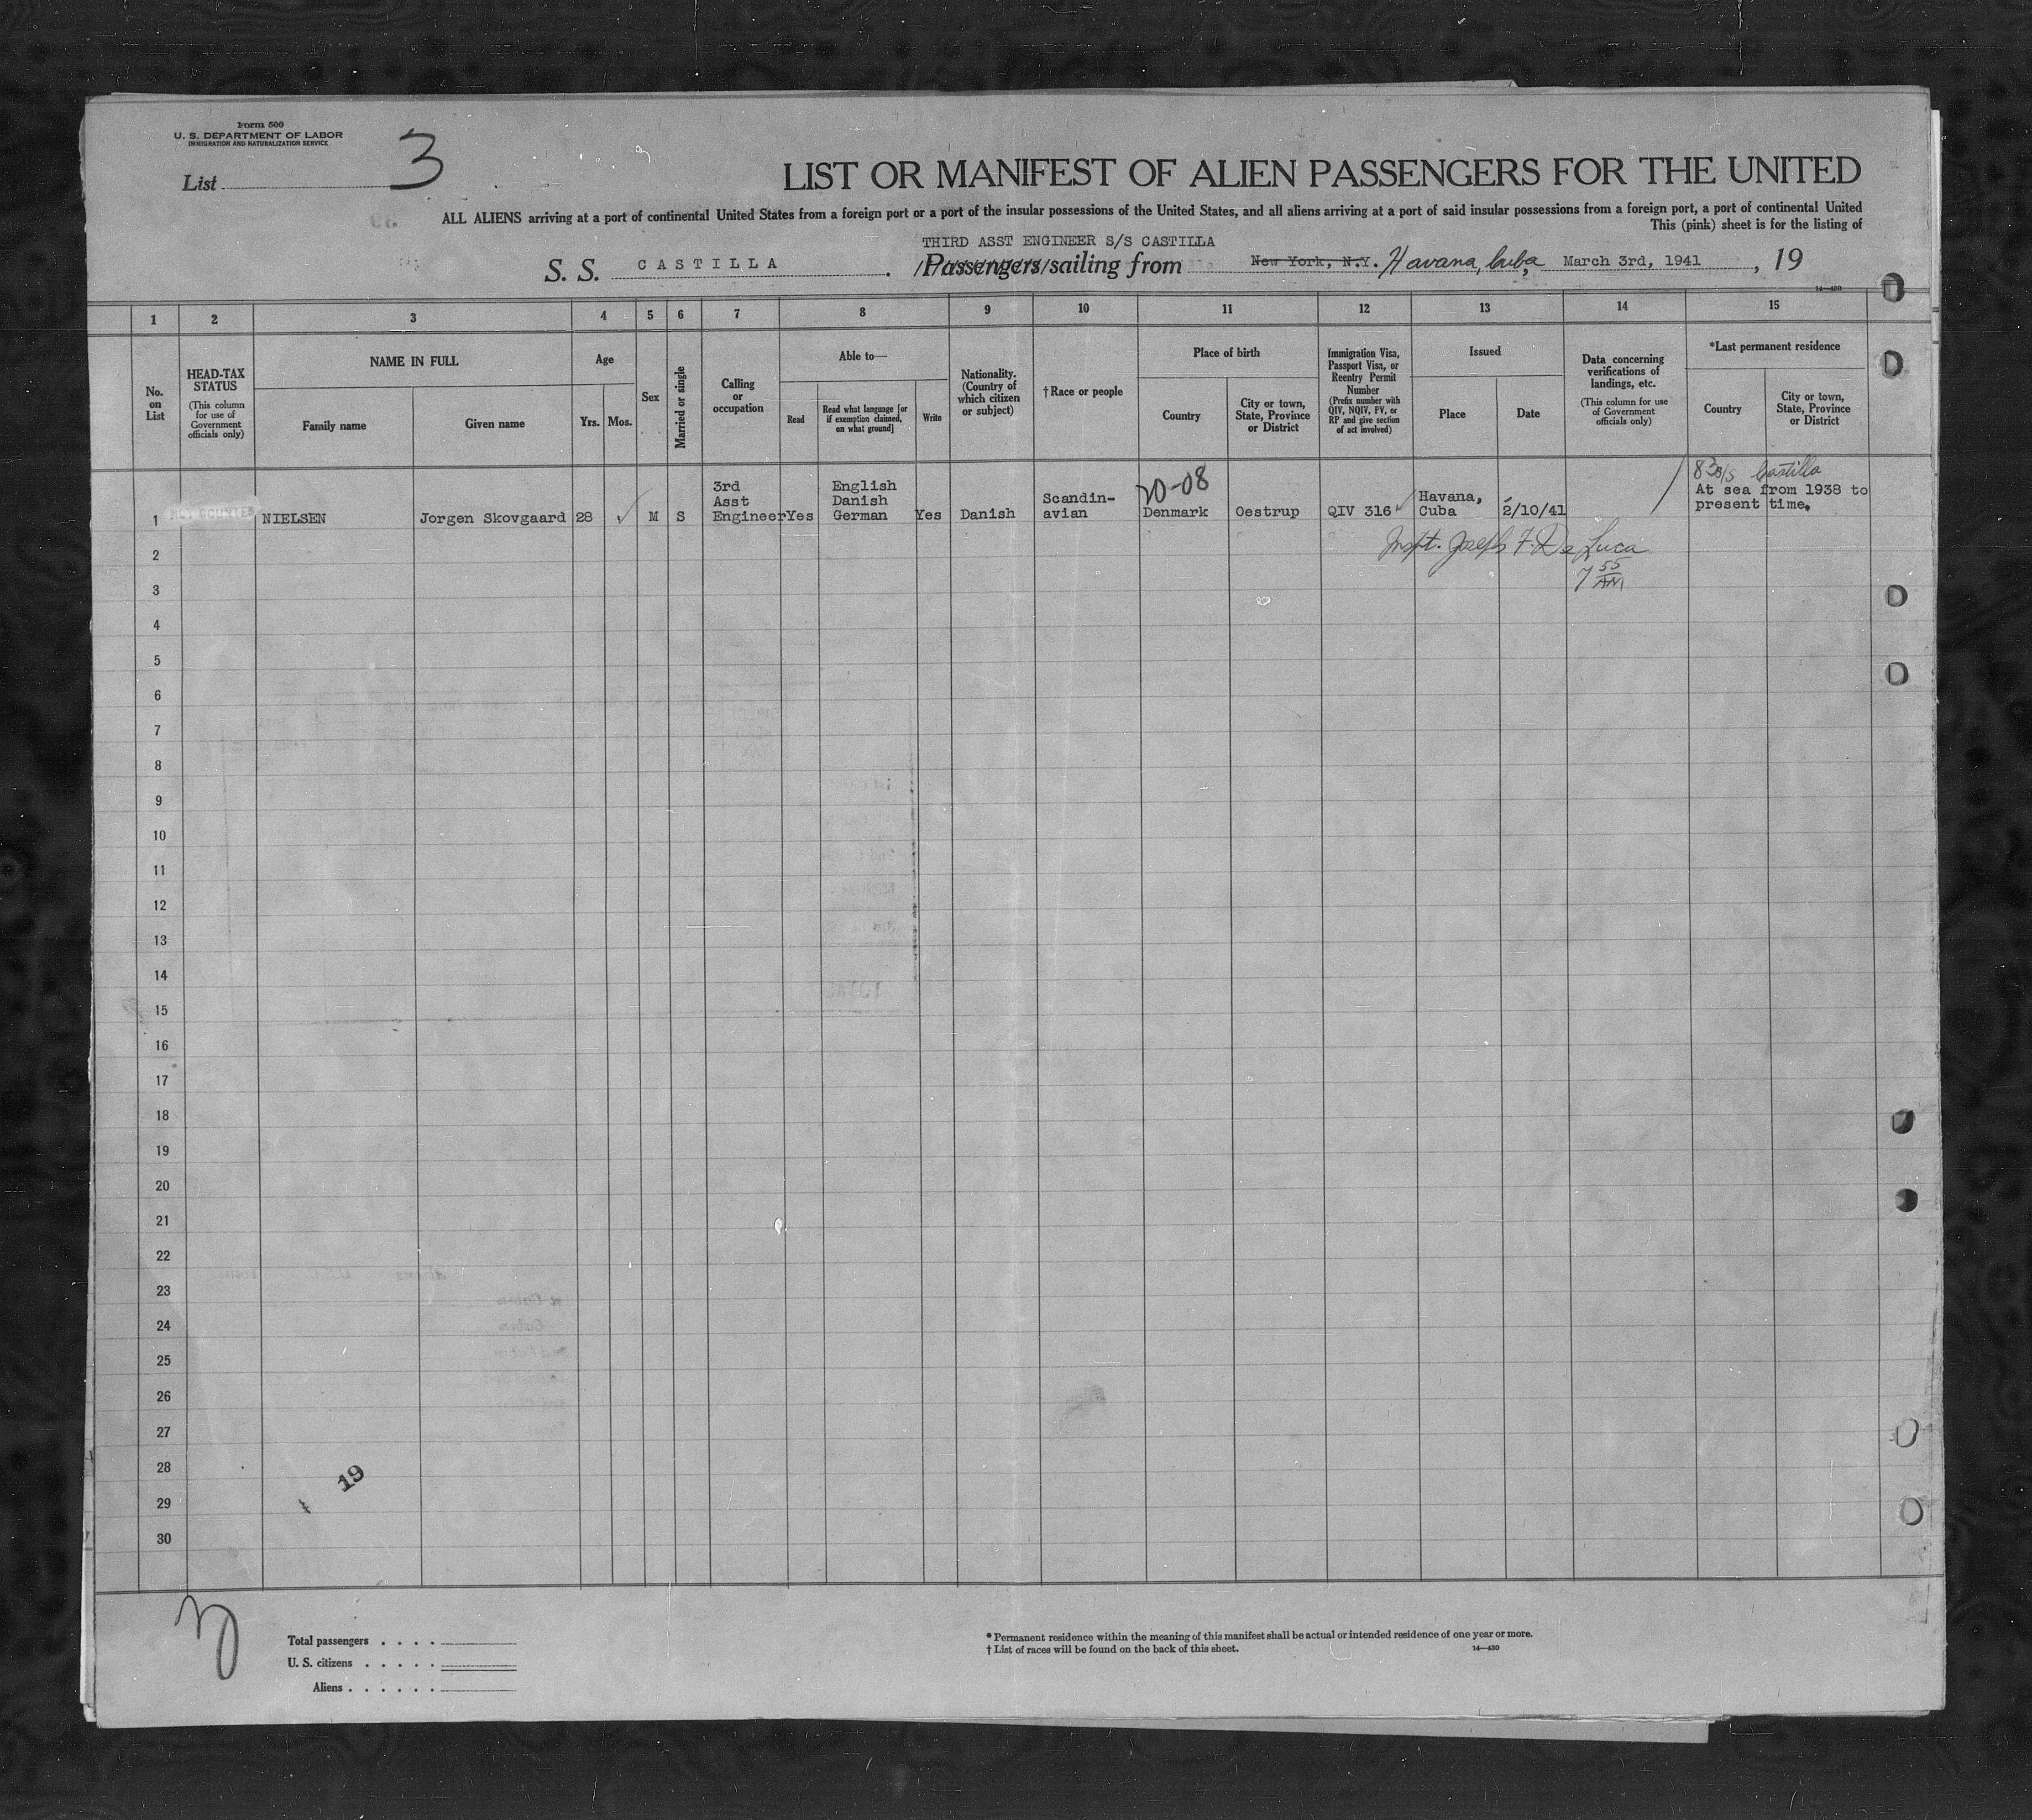 Form 500
U. S. DEPARTMENT OF LABOR
IMMIGRATION AND NATURALIZATION SERVICE
List 3
LIST OR MANIFEST OF ALIEN PASSENGERS FOR THE UNITED
ALL ALIENS arriving at a port of continental United States from a foreign port or a port of the insular possessions of the United States, and all aliens arriving at a port of said insular possessions from a foreign port, a port of continental United
This (pink) sheet is for the listing of
THIRD ASST ENGINEER S/S CASTILLA
S. S. CASTILLA . Passengers sailing from New York, N.Y. Havana, Cuba, March 3rd, 1941, 19
14—430
1 2 3 4 5 6 7 8 9 10 11 12 13 14 15
No. on List
HEAD-TAX STATUS
(This column for use of Government officials only)
NAME IN FULL
Family name
Given name
Age
Yrs. Mos.
Sex
Married or single
Calling or occupation
Able to—
Read
Read what language [or if exemption claimed, on what ground]
Write
Nationality. (Country of which citizen or subject)
†Race or people
Place of birth
Country
City or town, State, Province or District
Immigration Visa, Passport Visa, or Reentry Permit Number
(Prefix number with QIV, NQIV, PV, or RP and give section of act involved)
Issued
Place
Date
Data concerning verifications of landings, etc.
(This column for use of Government officials only)
*Last permanent residence
Country
City or town, State, Province or District
1 NIELSEN Jorgen Skovgaard 28 M S 3rd Asst Engineer Yes English Danish German Yes Danish Scandin-avian 20-08 Denmark Oestrup QIV 316 Havana, Cuba 2/10/41 S/S Castilla At sea from 1938 to present time.
Inspt. Joseph F. De Luca
7 55 AM
2
3
4
5
6
7
8
9
10
11
12
13
14
15
16
17
18
19
20
21
22
23
24
25
26
27
28
29
30
19
Total passengers
U. S. citizens
Aliens
* Permanent residence within the meaning of this manifest shall be actual or intended residence of one year or more.
† List of races will be found on the back of this sheet.
14—430